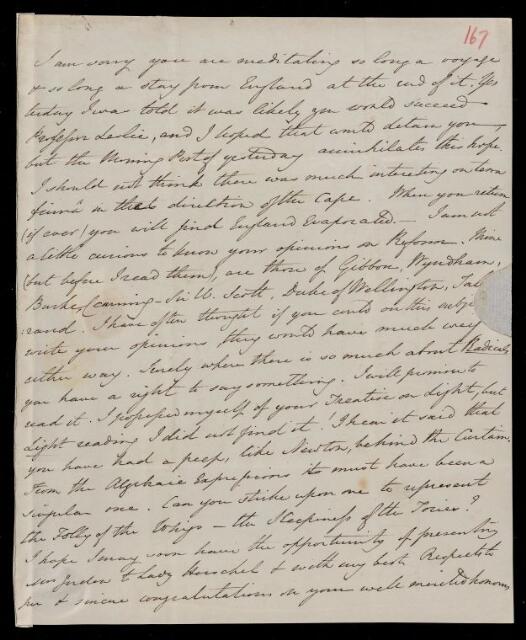 167
I am sorry you are meditating so long a voyage
& so long a stay from England at the end of it. Yes
terday I was told it was likely you would succeed
Professor Leslie, and I hoped that would detain you,
but the Morning Post of yesterday annihilates this hope.
I should not think there was much interesting on terra
firma in the direction of the Cape. When you return
(if ever) you will find England Evaporated. — I am not
a little curious to know your opinions on Reform. Mine
(but before I read them), are those of Gibbon, Wyndham,
Burke, Canning — Sir W. Scott, Duke of Wellington, Tal
rand. I have often thought if you could on this subje
write your opinions they would have much wei
either way. Surely where there is so much about Radicals
you have a right to say something. I will promise to
read it. I possessed myself of your Treatise on Light, but
Light reading I did not find it. I hear it said that
you have had a peep, like Newton, behind the Curtain.
From the Algebraic Expression it must have been a
singular one. Can you strike upon one to represent
the Folly of the Whigs — the Sleepiness of the Tories?
I hope I may soon have the opportunity of presenting
Mrs to Lady Herschel & with my best Respects to
her & sincere congratulations on your well merited honors